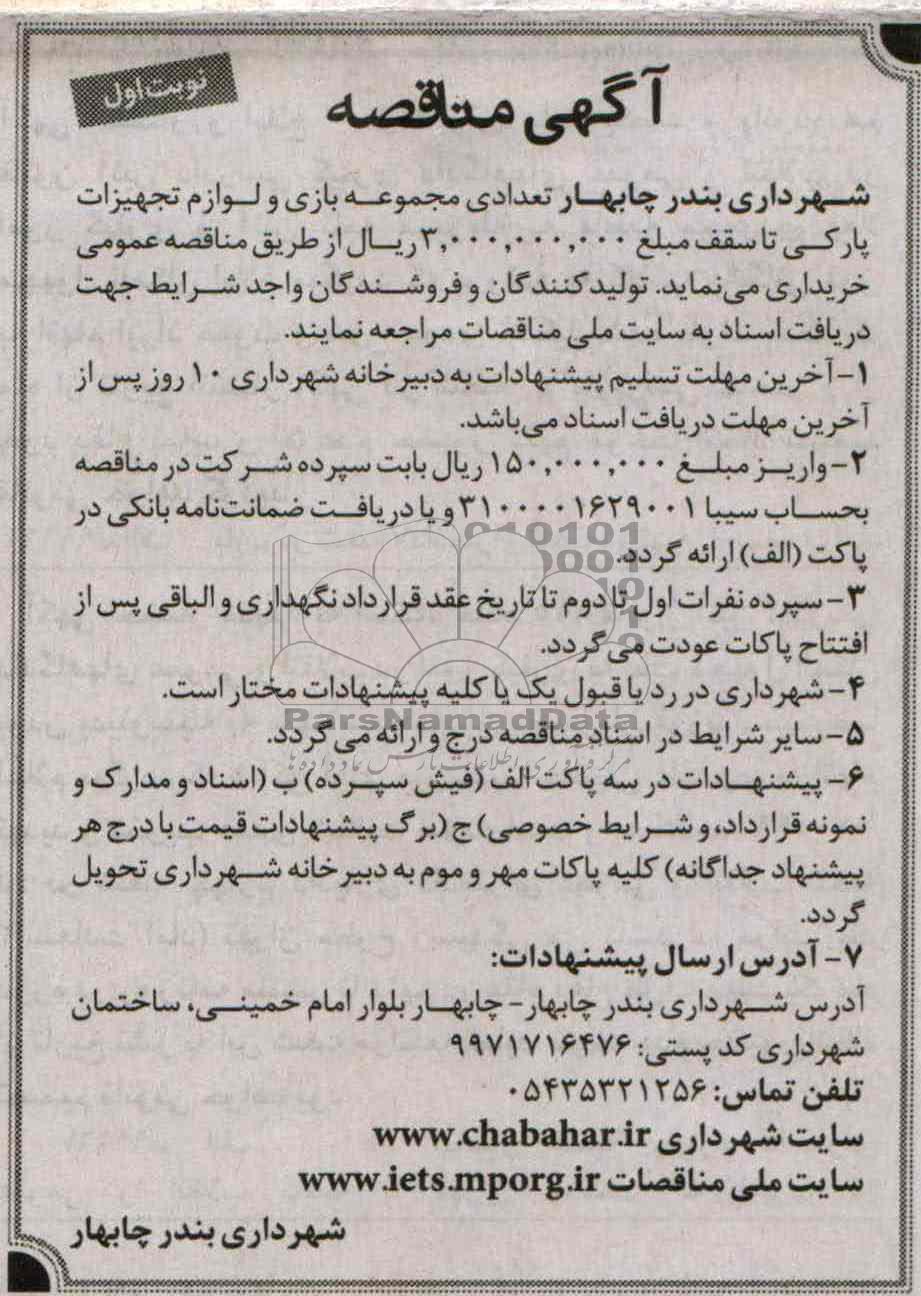 نوبت اول
آگهی مناقصه
شهرداری بندر چابهار تعدادی مجموعه بازی و لوازم تجهیزات
پارکی تا سقف مبلغ ۳,۰۰۰,۰۰۰,۰۰۰ ریال از طریق مناقصه عمومی
خریداری می‌نماید. تولیدکنندگان و فروشندگان واجد شرایط جهت
دریافت اسناد به سایت ملی مناقصات مراجعه نمایند.
۱- آخرین مهلت تسلیم پیشنهادات به دبیرخانه شهرداری ۱۰ روز پس از
آخرین مهلت دریافت اسناد می‌باشد.
۲- واریز مبلغ ۱۵۰,۰۰۰,۰۰۰ ریال بابت سپرده شرکت در مناقصه
بحساب سیبا ۳۱۰۰۰۰۱۶۲۹۰۰۱ و یا دریافت ضمانت‌نامه بانکی در
پاکت (الف) ارائه گردد.
۳- سپرده نفرات اول تا دوم تا تاریخ عقد قرارداد نگهداری و الباقی پس از
افتتاح پاکات عودت می‌گردد.
۴- شهرداری در رد یا قبول یک یا کلیه پیشنهادات مختار است.
ParsNamadData
۵- سایر شرایط در اسناد مناقصه درج و ارائه می‌گردد.
مرکز فرآوری اطلاعات پارس نماد داده ها
۶- پیشنهادات در سه پاکت الف (فیش سپرده) ب (اسناد و مدارک و
نمونه قرارداد، و شرایط خصوصی) ج (برگ پیشنهادات قیمت با درج هر
پیشنهاد جداگانه) کلیه پاکات مهر و موم به دبیرخانه شهرداری تحویل
گردد.
۷- آدرس ارسال پیشنهادات:
آدرس شهرداری بندر چابهار- چابهار بلوار امام خمینی، ساختمان
شهرداری کد پستی: ۹۹۷۱۷۱۶۴۷۶
تلفن تماس: ۰۵۴۳۵۳۲۱۲۵۶
سایت شهرداری www.chabahar.ir
سایت ملی مناقصات www.iets.mporg.ir
شهرداری بندر چابهار